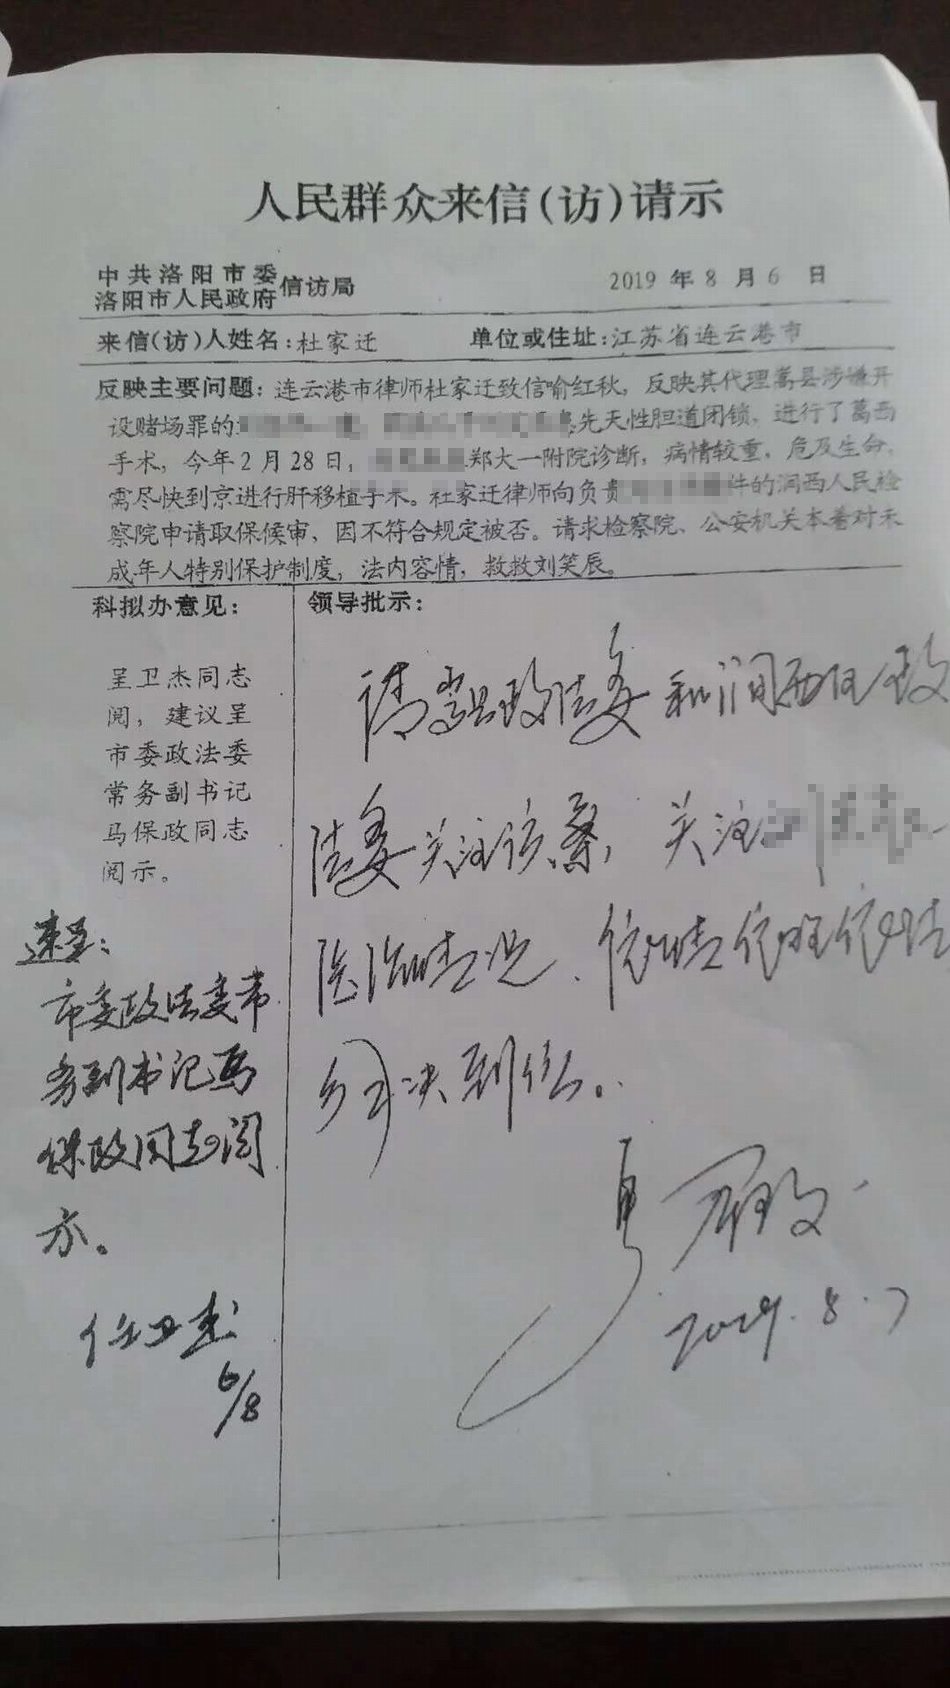 人民群众来信(访)请示
中共洛阳市委
洛阳市人民政府
信访局
2019 年 8 月 6 日
来信(访)人姓名:杜家迁 单位或住址:江苏省连云港市
反映主要问题:连云港市律师杜家迁致信喻红秋,反映其代理嵩县涉嫌开
设赌场罪的 先天性胆道闭锁、进行了葛西
手术,今年2月28日, 郑大一附院诊断,病情较重,危及生命,
需尽快到京进行肝移植手术。杜家迁律师向负责 件的涧西人民检
察院申请取保候审,因不符合规定被否。请求检察院、公安机关本着对未
成年人特别保护制度,法内容情,救救刘笑辰。
科拟办意见:
呈卫杰同志
阅,建议呈
市委政法委
常务副书记
马保政同志
阅示。
速呈:
市委政法委常
务副书记马
保政同志阅
示。
任卫杰
6/8
领导批示:
请嵩县政法委和涧西区政
法委关注该案,关注
医治情况、依情依理依法
解决到位。
马保政
2019.8.7